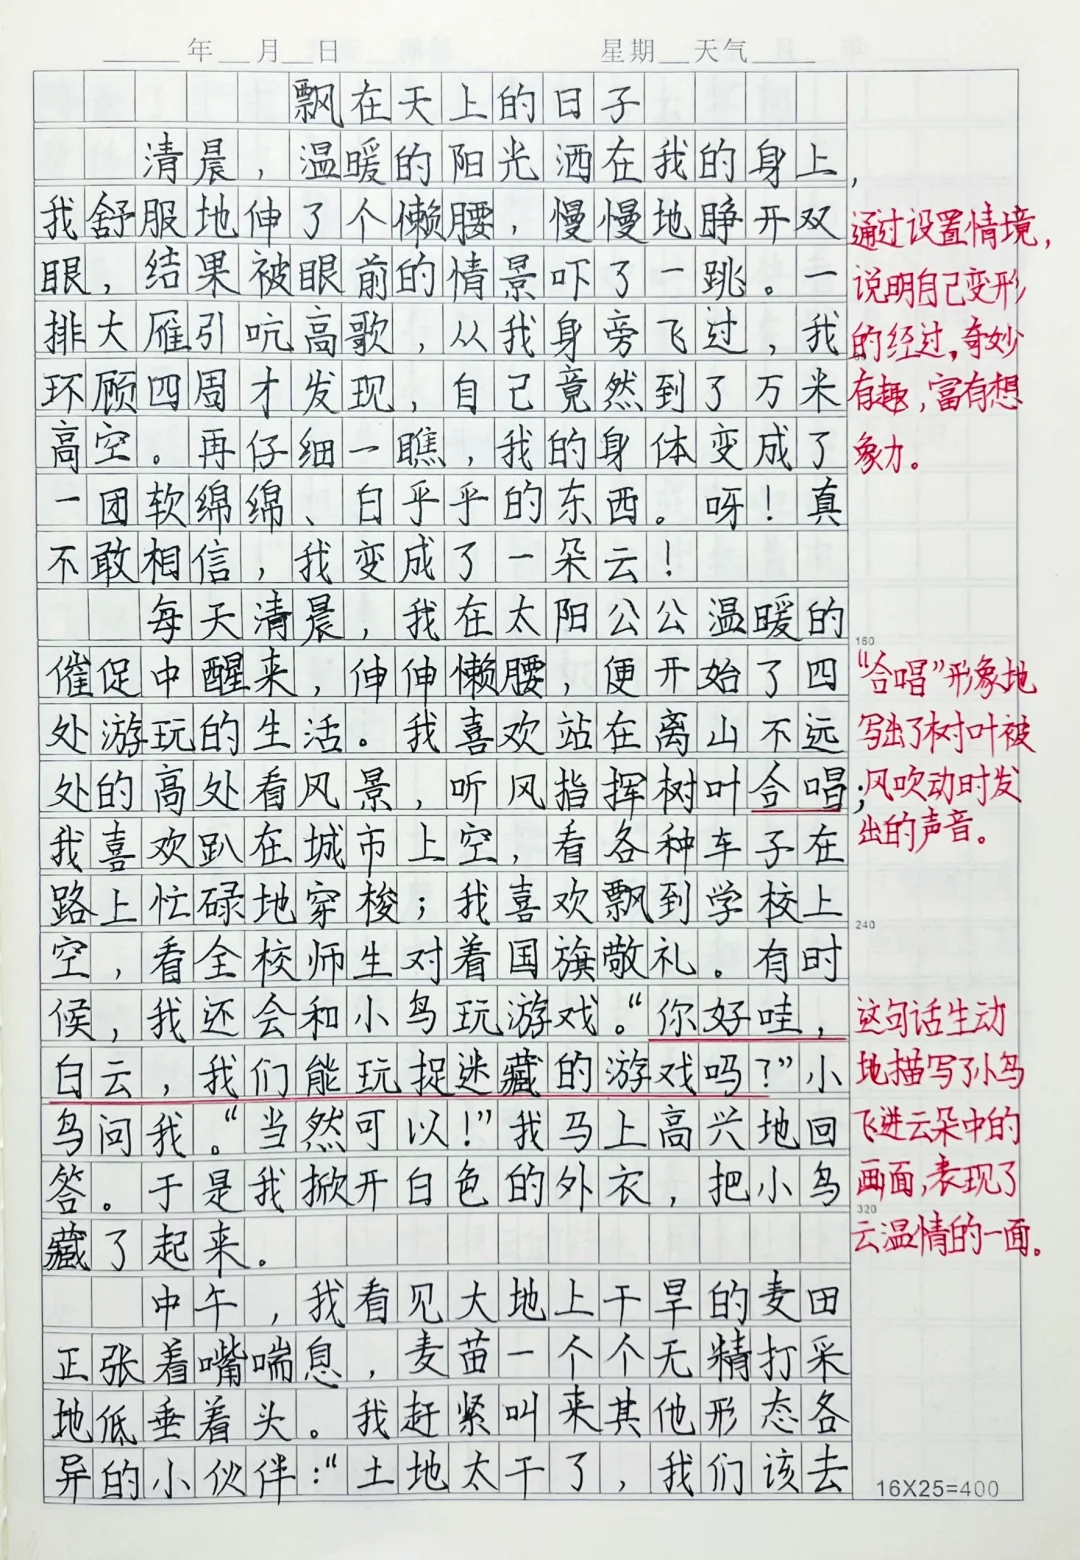 ____年__月__日 星期__天气____
飘在天上的日子
清晨，温暖的阳光洒在我的身上，
我舒服地伸了个懒腰，慢慢地睁开双
眼，结果被眼前的情景吓了一跳。一
排大雁引吭高歌，从我身旁飞过，我
环顾四周才发现，自己竟然到了万米
高空。再仔细一瞧，我的身体变成了
一团软绵绵、白乎乎的东西。呀！真
不敢相信，我变成了一朵云！
每天清晨，我在太阳公公温暖的
催促中醒来，伸伸懒腰，便开始了四
处游玩的生活。我喜欢站在离山不远
处的高处看风景，听风指挥树叶合唱；
我喜欢趴在城市上空，看各种车子在
路上忙碌地穿梭；我喜欢飘到学校上
空，看全校师生对着国旗敬礼。有时
候，我还会和小鸟玩游戏。“你好哇，
白云，我们能玩捉迷藏的游戏吗？”小
鸟问我。“当然可以！”我马上高兴地回
答。于是我掀开白色的外衣，把小鸟
藏了起来。
中午，我看见大地上干旱的麦田
正张着嘴喘息，麦苗一个个无精打采
地低垂着头。我赶紧叫来其他形态各
异的小伙伴：“土地太干了，我们该去
通过设置情境，
说明自己变形
的经过，奇妙
有趣，富有想
象力。
160
“合唱”形象地
写出了树叶被
风吹动时发
出的声音。
240
这句话生动
地描写了小鸟
飞进云朵中的
画面，表现了
320
云温情的一面。
16X25=400